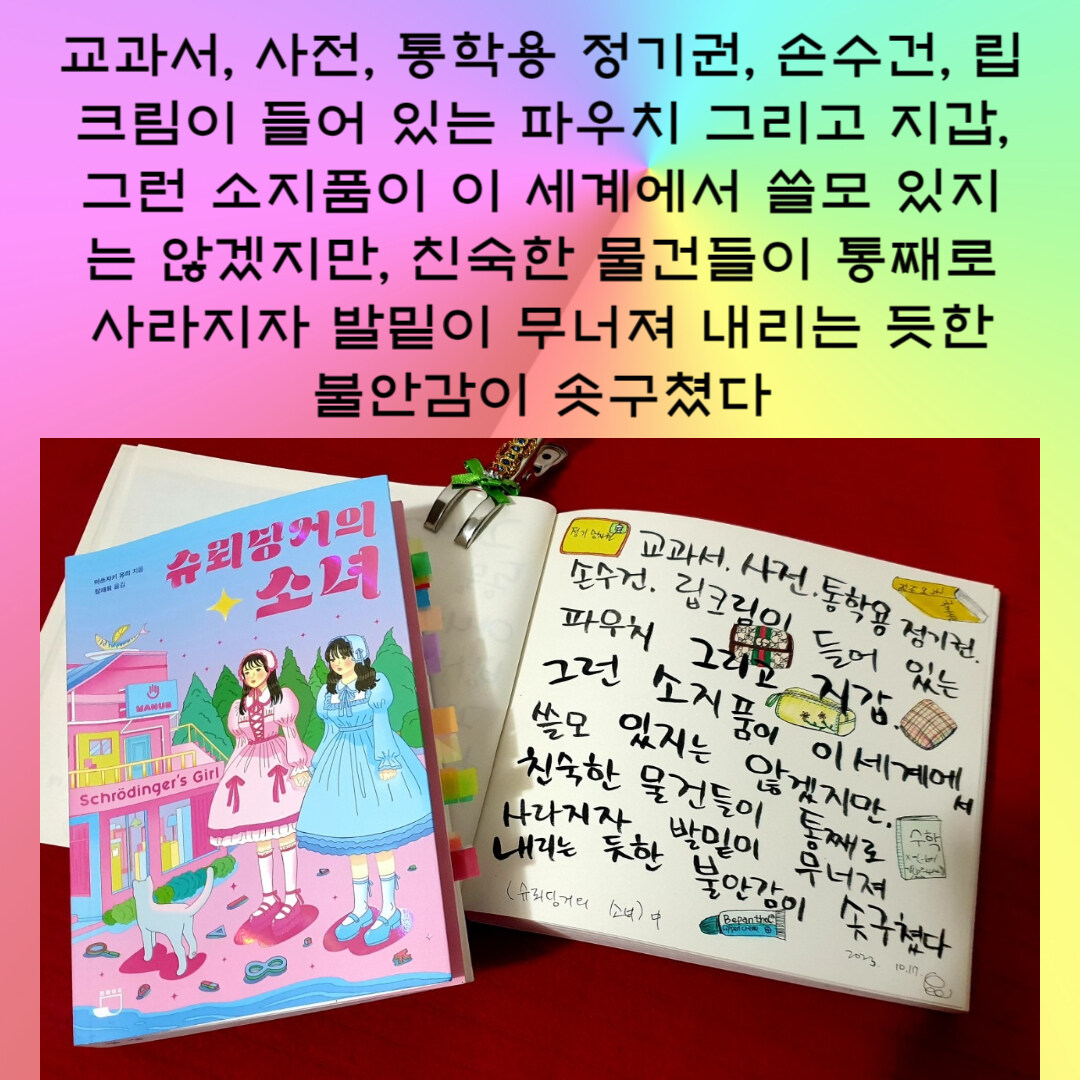 교과서, 사전, 통학용 정기권, 손수건, 립
크림이 들어 있는 파우치 그리고 지갑,
그런 소지품이 이 세계에서 쓸모 있지
는 않겠지만, 친숙한 물건들이 통째로
사라지자 발밑이 무너져 내리는 듯한
불안감이 솟구쳤다
슈뢰딩거의
소녀
마쓰자키 유리 지음
장재희 옮김
WAHUB
Schrödinger's Girl
교과서. 사전. 통학용 정기권.
손수건. 립크림이 들어 있는
파우치 그리고 지갑.
그런 소지품이 이 세계에서
쓸모 있지는 않겠지만.
친숙한 물건들이 통째로
사라지자 발밑이 무너져
내리는 듯한 불안감이 솟구쳤다
(슈뢰딩거의 소녀) 中
수학
Bepanthen
2023. 10.17.